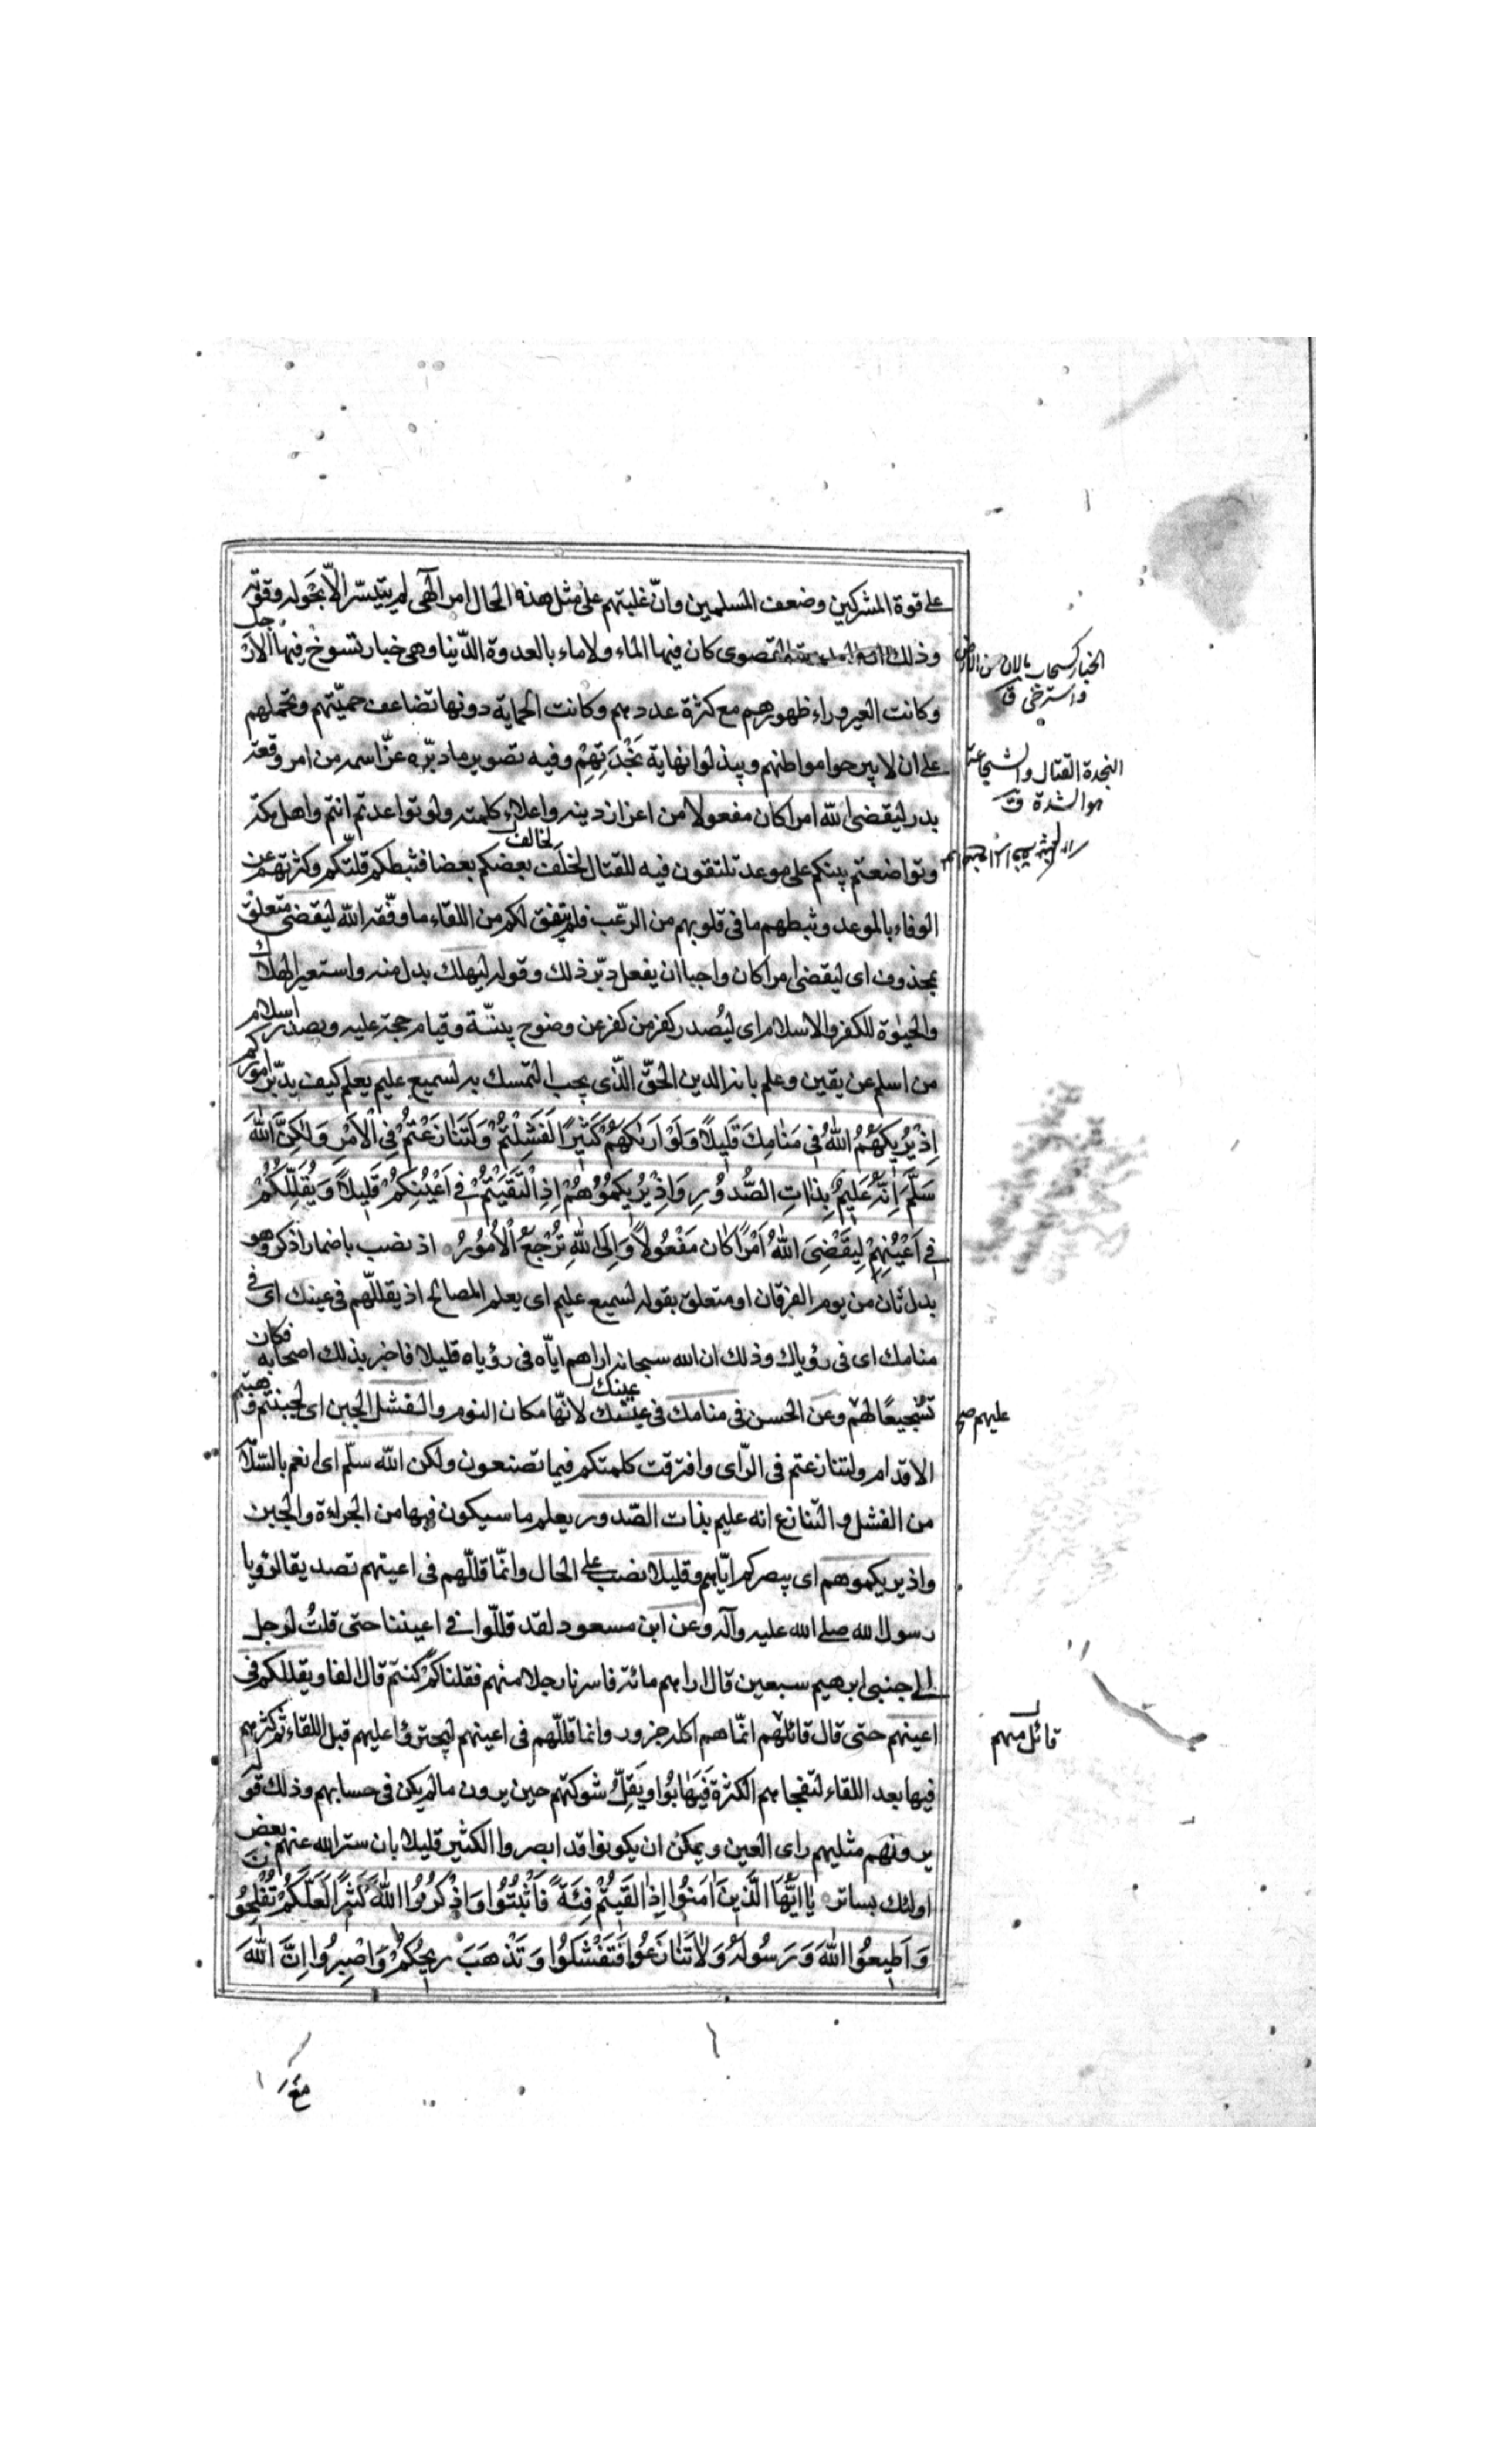 على قوة المشركين وضعف المسلمين وانّ غلبتهم على مثل هذه الحال امر الٓهى لم يتيسّر الّا بحَوله وقوّته
وذلك القصوى كان فيها الماء ولا ماء بالعدوة الدّنيا وهى خبار تسوخ فيها الارجل
وكانت العير وراء ظهورهم مع كثرة عددهم وكانت الحماية دونها تضاعف حميّتهم وتحملهم
على ان لا يبرحوا مواطنهم ويبذلوا نهاية نَجْدَتِهِمْ وفيه تصوير ما دبّره عزّ اسمه من امر وقعة
بدر ليقضى اللّه امرا كان مفعولا من اعزاز دينه واعلاء كلمته ولو تواعدتم انتم واهل مكّة
وتواضعتم بينكم على موعد تلتقون فيه للقتال لخالف بعضكم بعضا فثبطكم قلّتكم وكثرتهم عن
الوفاء بالموعد وثبطهم ما فى قلوبهم من الرّعب فلم يتفق لكم من اللقاء ما وفّقه اللّه ليقضى متعلق
بمحذوف اى ليقضى امرا كان واجبا ان يفعل دبّر ذلك وقوله ليهلك بدل منه واستعير الهلاك
والحيٰوة للكفر والاسلام اى ليُصدر كفر من كفر عن وضوح بيّنة وقيام حجة عليه ويصدر اسلام
من اسلم عن يقين وعلم بانه الدين الحقّ الّذى يجب التمسك به لسميع عليم يعلم كيف يدبّر اموركم
اِذْ يُرِيكَهُمُ اللّٰهُ فِى مَنٰامِكَ قَلِيلًا وَلَوْ اَرٰىكَهُمْ كَثِيرًا لَفَشِلْتُمْ وَلَتَنٰازَعْتُمْ فِى الْاَمْرِ وَلٰكِنَّ اللّٰهَ
سَلَّمَ اِنَّهُ عَلِيمٌ بِذٰاتِ الصُّدُورِ وَاِذْ يُرِيكُمُوهُمْ اِذِ الْتَقَيْتُمْ فِى اَعْيُنِكُمْ قَلِيلًا وَيُقَلِّلُكُمْ
فِى اَعْيُنِهِمْ لِيَقْضِىَ اللّٰهُ اَمْرًا كٰانَ مَفْعُولًا وَاِلَى اللّٰهِ تُرْجَعُ الْاُمُورُ اذ نصب باضمار اذكر وهو
بدل ثان من يوم الفرقان او متعلق بقوله لسميع عليم اى يعلم المصالح اذ يقلّلهم فى عينك اى فى
منامك اى فى رؤياك وذلك ان الله سبحانه اراهم ايّاه فى رؤياه قليلا فاخبر بذلك اصحابه فكان
تشجيعًا لهم وعن الحسن فى منامك فى عينك لانّها مكان النوم والفشل الجبن اى لجبنتم وهبتم
الاقدام ولتنازعتم فى الرّاى وافترقت كلمتكم فيما تصنعون ولكن اللّه سلّم اى انعم بالسّلامة
من الفشل والتّنازع انه عليم بذات الصّدور يعلم ما سيكون فيها من الجراءة والجبن
واذ يريكموهم اى يبصركم ايّاهم وقليلا نصب على الحال وانّما قلّلهم فى اعينهم تصديقا لرؤيا
رسول الله صلى الله عليه وآله وعن ابن مسعود لقد قلّلوا فى اعيننا حتى قلتُ لرجل
الى جنبى اتريهم سبعين قال اراهم مائة فاسرنا رجلا منهم فقلنا كم كنتم قال الفا ويقللكم فى
اعينهم حتى قال قائلهم انّما هم اكلة جزور وانما قلّلهم فى اعينهم ليجترؤا عليهم قبل اللقاء ثم كثرهم
فيها بعد اللقاء لتفجاهم الكثرة فَيَهٰابُوا ويَقِلّ شوكتهم حين يرون ما لم يكن فى حسابهم وذلك قوله
يرونهم مثليهم راى العين ويمكن ان يكونوا قد ابصروا الكثير قليلا بان ستر الله عنهم بعض
اولئك بساتر يٰا اَيُّهَا الَّذِينَ اٰمَنُوا اِذٰا لَقِيتُمْ فِئَةً فَاثْبُتُوا وَاذْكُرُوا اللّٰهَ كَثِيرًا لَعَلَّكُمْ تُفْلِحُونَ
وَاَطِيعُوا اللّٰهَ وَرَسُولَهُ وَلٰا تَنٰازَعُوا فَتَفْشَلُوا وَتَذْهَبَ رِيحُكُمْ وَاصْبِرُوا اِنَّ اللّٰهَ
الخبار كسحاب مالان من الارض
واسترخى ق
النجدة القتال والشجاعة
هو الشدة ق
عليهم صح
قائل منهم